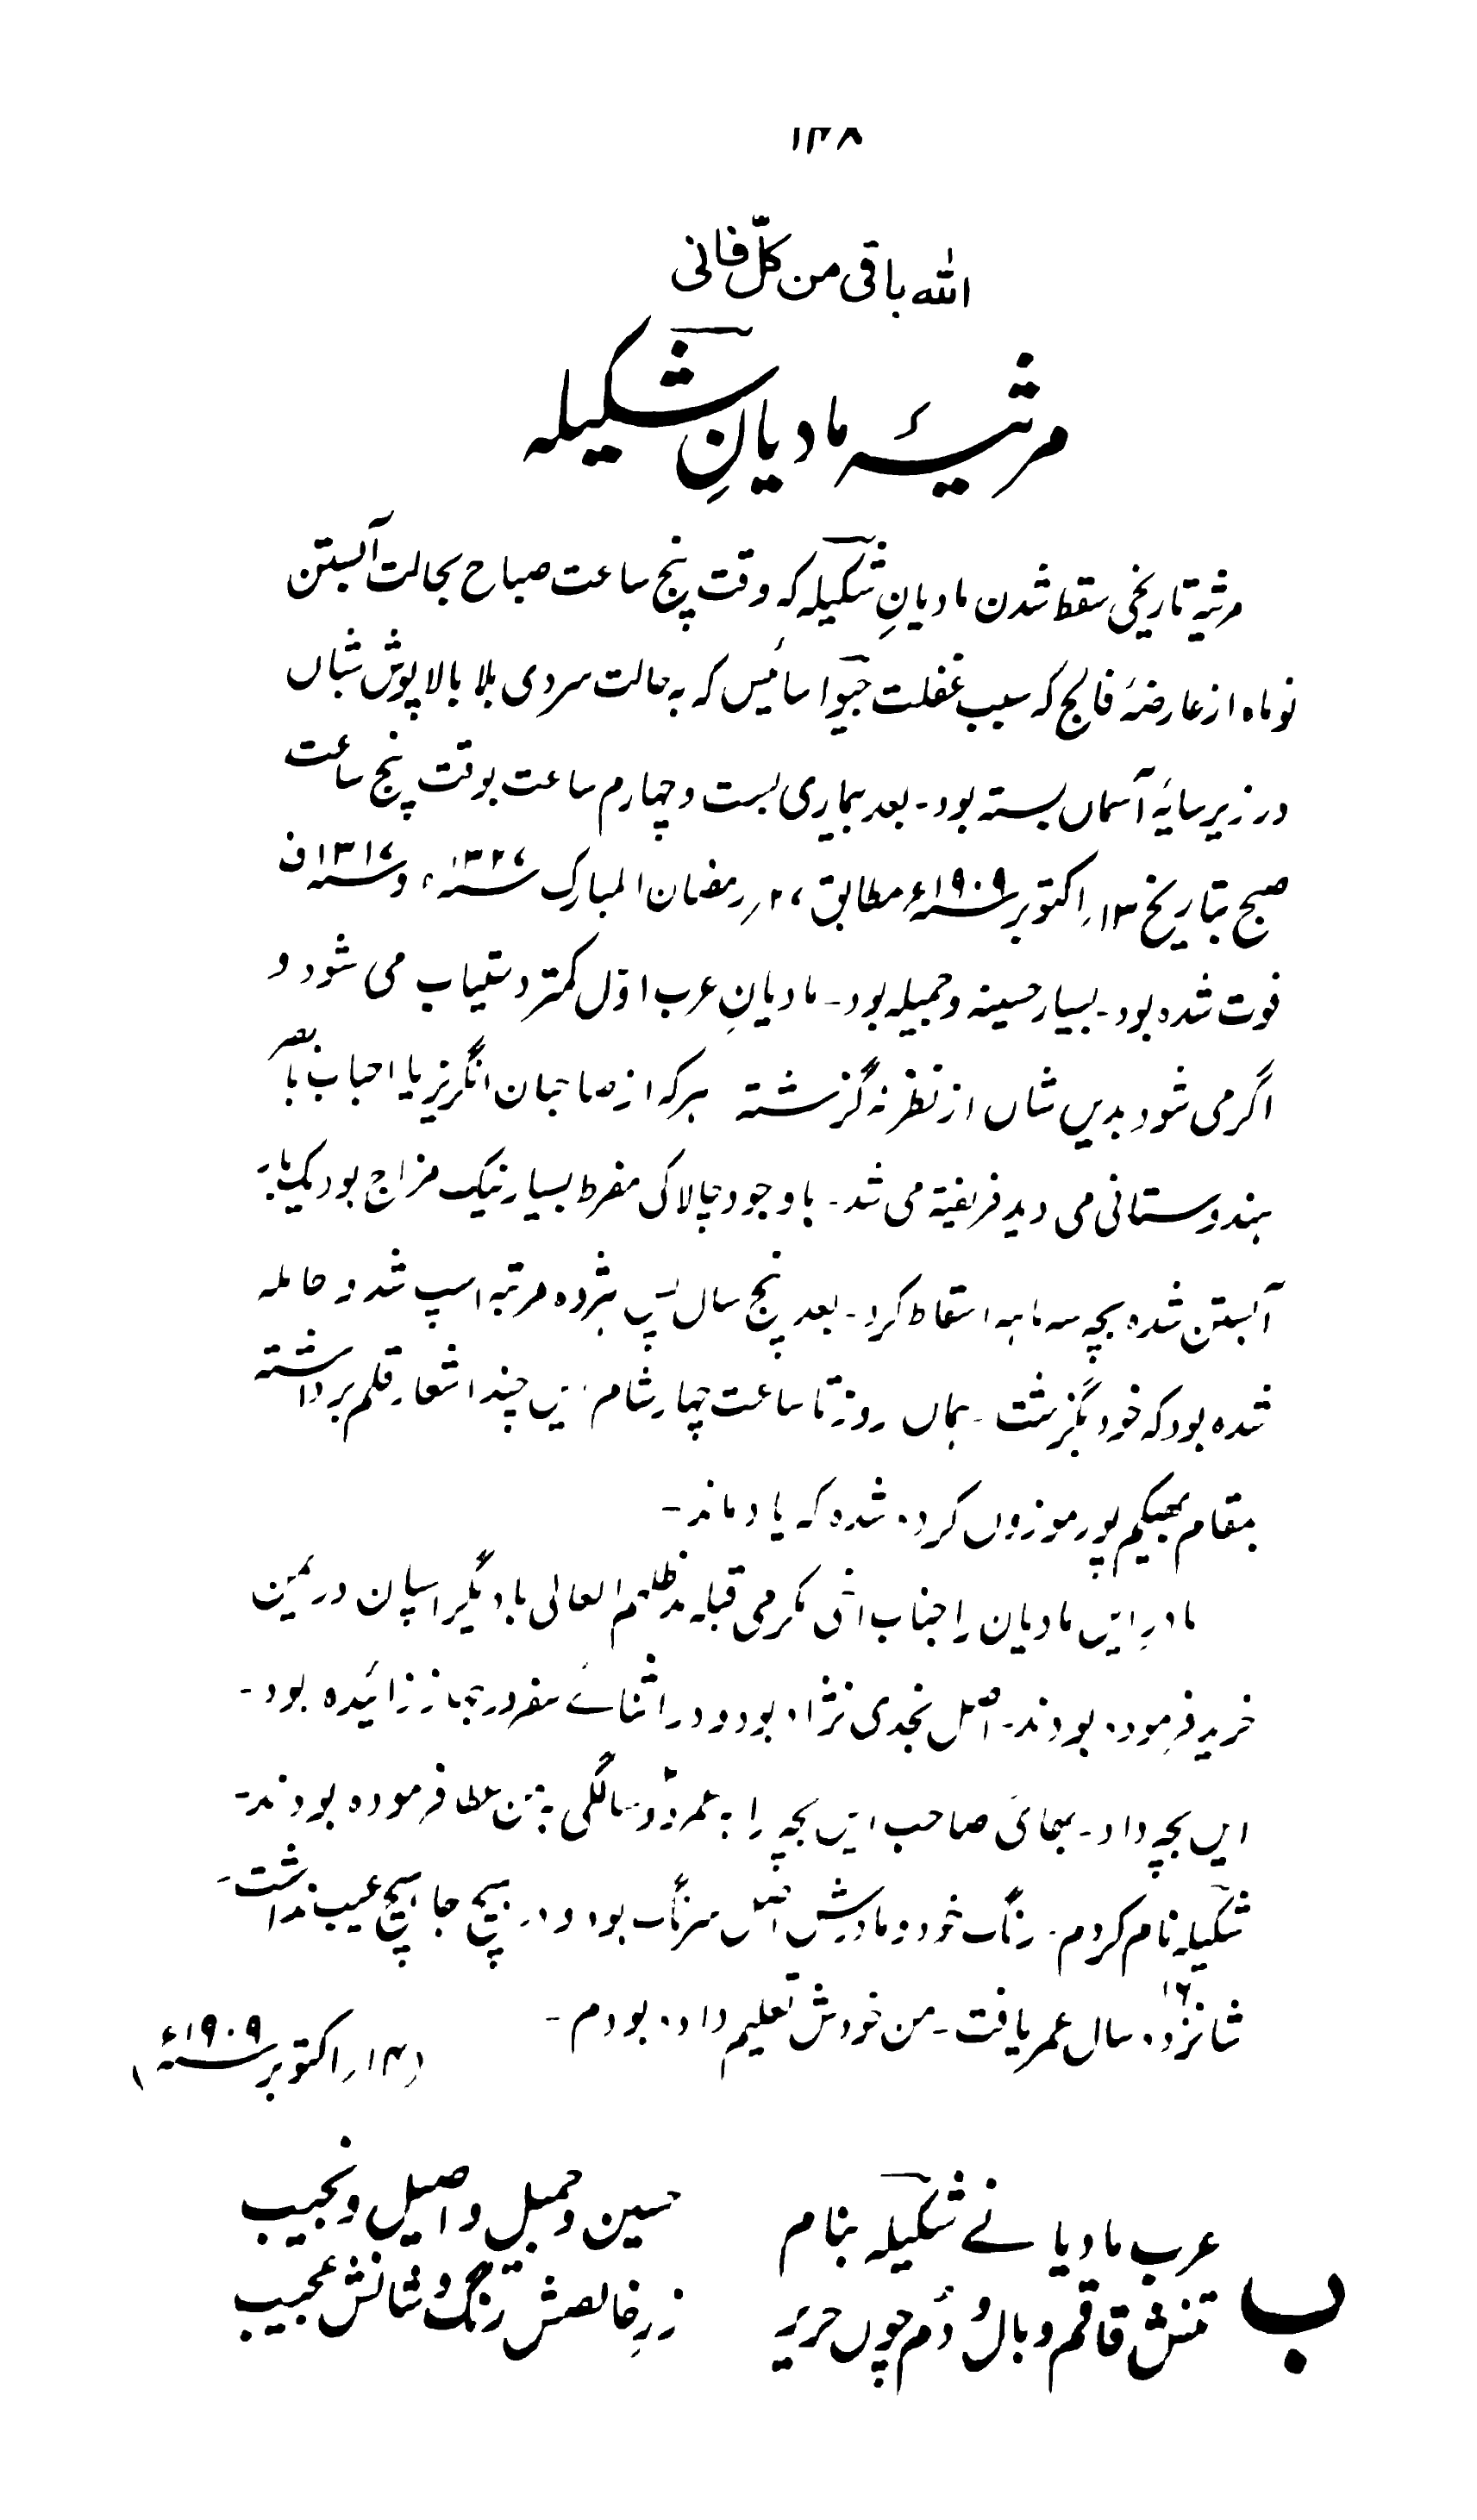 ۱۳۸
اللہ باقی من کلّ فانی
مرثیۂ مادیانِ شکیلہ
مرثیہ تاریخی سقط شدن مادیانِ شکیلہ کہ وقت پنج ساعت صباح بحالت آبستن
نو ماہ از عارضۂ فالج کہ سبب غفلت جیوا سائیس کہ بہ حالت سردی بلا بالاپوش شباں
در زیر سایۂ آسماں بستہ بود۔ بعد بیماری بست و چہارم ساعت بوقت پنج ساعت
صبح بتاریخ ۱۳؍ اکتوبر ۱۹۰۹ء مطابق رمضان المبارک و ۱۳۱۶ ف
فوت شدہ بود۔ بسیار حسینہ و جمیلہ بود۔ مادیانِ عرب اوّل کمتر دستیاب می شود و
اگر می شود بدیں شاں از نظر نہ گزشتہ ہر کہ از صاحبان انگریز یا احباب
ہندوستانی می دید فریفتہ می شد۔ باوجود چالاکی مفرط بسیار نیک مزاج بود یک بار
آبستن شدہ بچہ سہ ماہہ اسقاط کرد۔ بعد پنج سال پس ہژدہ مرتبہ اسپ شد و حاملہ
شدہ بود کہ خود بگزشت۔ ہماں روز تا ساعت چہار شام ایں چند اشعار قلم برداشتہ
بمقام بھیکم پور موزوں کردہ شدہ کہ یاد ماند۔
مادرِ ایں مادیان را جناب اخی مکرمی قبلہ مدظلہم العالی با دیگر اسپان در
خرید فرمودہ بودند۔ اصل نجدی نژاد بود و در اثنائے سفر در جہاز زائیدہ بود۔
ایں بچہ داد۔ بھائی صاحب ایں بچہ را بہ عمر دو سالگی بہ من عطا فرمودہ بودند۔
شکیلہ نام کردم۔ رنگ خود و مادرش اصل سرنگ بود و در ہیچ جا ہیچ عیب نداشت۔
شانزدہ ۱۶ سال عمر یافت۔ من خودش تعلیم دادہ بودم۔
(۱۳؍ اکتوبر ۱۹۰۹ء)
عرب مادیانے شکیلہ بنام حسین و جمیل و اصیل و نجیب
ب تنش قاقم و بال و دُم چوں حریر زرِ خالصش رنگ و شانش عجیب